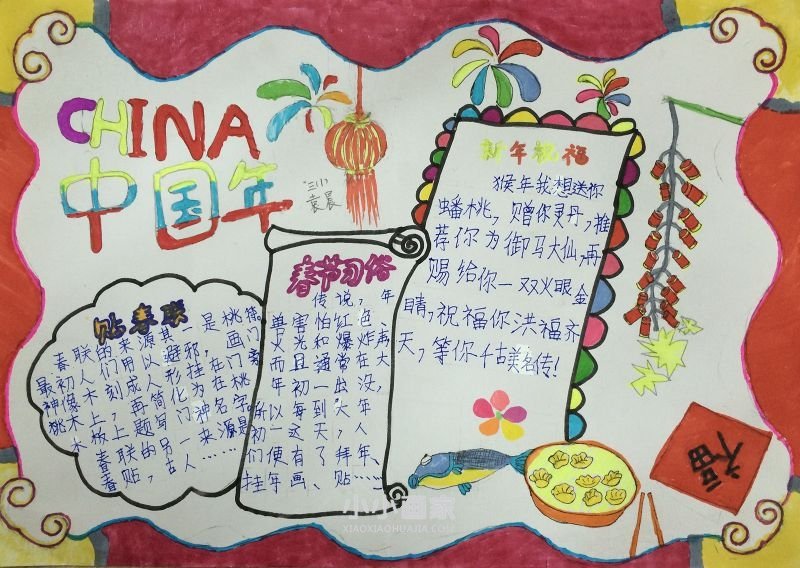 CHINA
中国年
三(1)
袁晨
贴春联
春联的来源其一是桃符
最初人们用以避邪，画门
神像刻成人形挂在门旁
桃木上，再简化为在桃
木板上题写门神名字。
春联的另一来源是
春贴，古人……
春节习俗
传说，年
兽害怕红色、
火光和爆炸声，
而且通常在大
年初一出没，
所以每到大年
初一这天，人
们便有了拜年、
挂年画、贴……
新年祝福
猴年我想送你
蟠桃，赠你灵丹，推
荐你为御马大仙，再
赐给你一双火眼金
睛，祝福你洪福齐
天，等你千古美名传！
福
小小画家
XIAOXIAOHUAJIA.COM